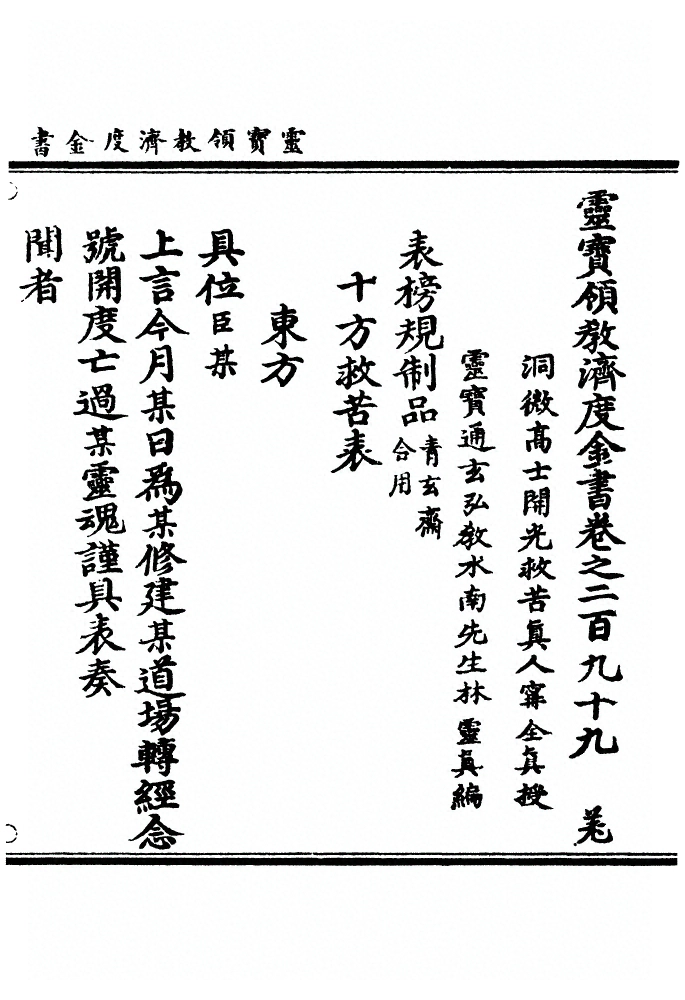 靈寶領教濟度金書
靈寶領教濟度金書卷之二百九十九
洞微高士開光救苦眞人甯全眞授
靈寶通玄弘教水南先生林靈眞編
表榜規制品青玄齋合用
十方救苦表
東方
具位臣某
上言今月某日爲某修建某道場轉經念
號開度亡過某靈魂謹具表奏
聞者